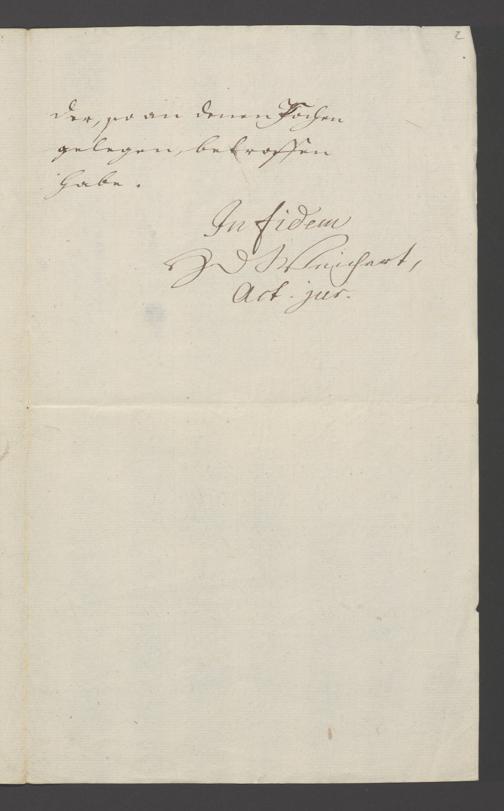 2
der, so an denen Pocken
gelegen, betroffen
habe.
In fidem
Weichart,
Act. jur.